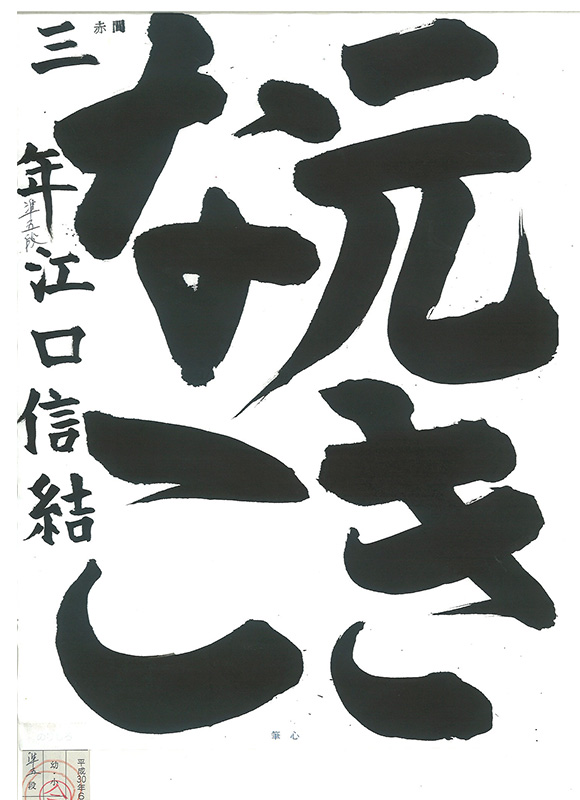 元き
なこ
三年江口信結
準五段
赤間
心筆
平成30年6
幼・小
準五段